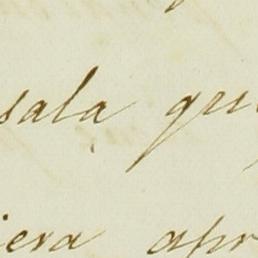 sala qu
iera apr